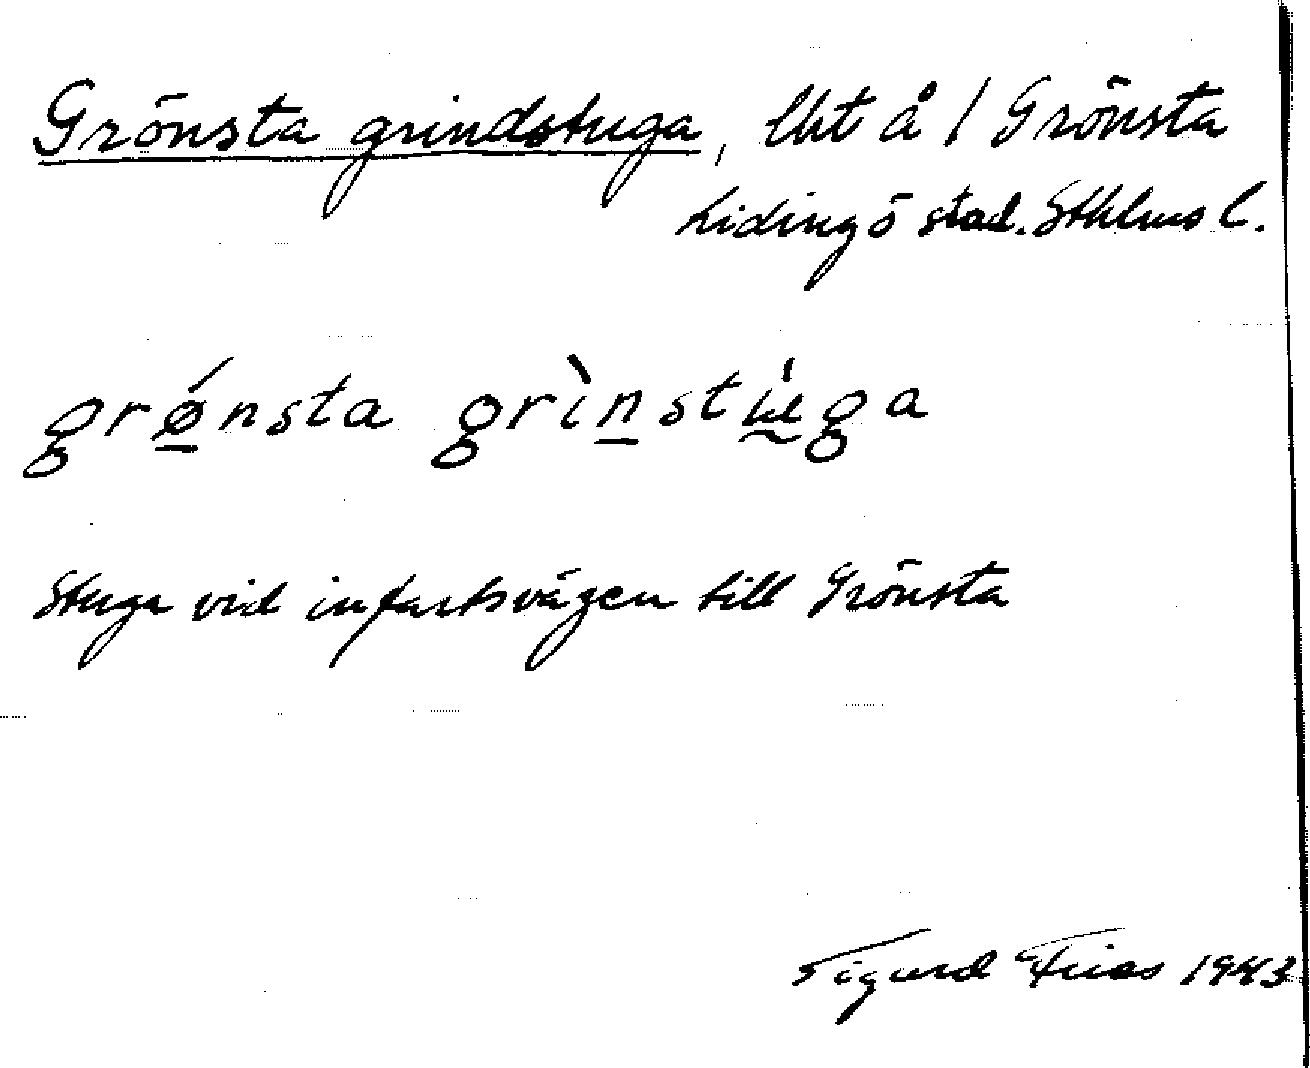 Grönsta grindstuga, lht å 1 Grönsta
Lidingö stad. Sthlms l.
grǿnsta grìnstu̍ga
Stuga vid infartsvägen till Grönsta
Sigurd Fries 1943